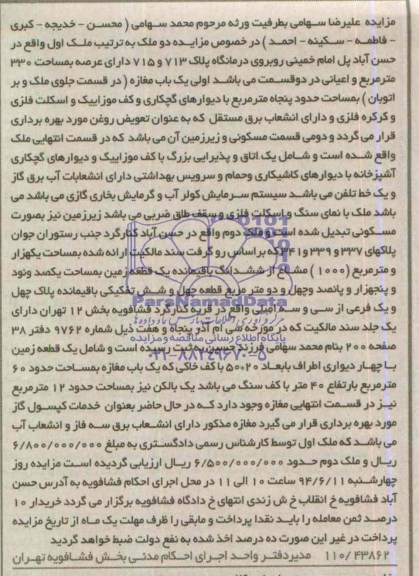 مزایده علیرضا سهامی بطرفیت ورثه مرحوم محمد سهامی ( محسن - خدیجه - کبری
- فاطمه - سکینه - احمد ) در خصوص مزایده دو ملک به ترتیب ملک اول واقع در
حسن آباد پل امام خمینی روبروی درمانگاه پلاک ۷۱۳ و ۷۱۵ دارای عرصه بمساحت ۳۳۰
مترمربع و اعیانی در دوقسمت می باشد اولی یک باب مغازه ( در قسمت جلوی ملک و بر
اتوبان ) بمساحت حدود پنجاه مترمربع با دیوارهای گچکاری و کف موزاییک و اسکلت فلزی
و کرکره فلزی و دارای انشعاب برق مستقل که به عنوان تعویض روغن مورد بهره برداری
قرار می گردد و دومی قسمت مسکونی و زیرزمین آن می باشد که در قسمت انتهایی ملک
واقع شده است و شامل یک اتاق و پذیرایی بزرگ با کف موزاییک و دیوارهای گچکاری
آشپزخانه با دیوارهای کاشیکاری وحمام و سرویس بهداشتی دارای انشعابات آب برق گاز
و یک خط تلفن می باشد سیستم سرمایش کولر آب و گرمایش بخاری گازی می باشد می
باشد ملک با نمای سنگ و اسکلت فلزی و سقف طاق ضربی می باشد زیرزمین نیز بصورت
مسکونی تبدیل شده است و ملک دوم واقع در حسن آباد کنارگرد جنب رستوران جوان
پلاکهای ۳۳۷ و ۳۳۹ و ۳۴۱ که براساس رو گرفت سند مالکیت ارائه شده بمساحت یکهزار
و مترمربع (۱۰۰۰) مشاع از ششدانگ باقیمانده یک قطعه زمین بمساحت یکصد ونود
و پنجهزار و پانصد وچهل و دو متر مربع قطعه چهل و شش تفکیکی باقیمانده پلاک چهل
و یک فرعی از سی و سه اصلی واقع در قریه کنارگرد فشافویه بخش ۱۲ تهران دارای
یک جلد سند مالکیت که در مورخه سی ام آذر پنجاه و هفت ذیل شماره ۹۷۶۲ دفتر ۳۸
صفحه ۲۰۰ بنام محمد سهامی فرزند حسین به ثبت رسیده است و شامل یک قطعه زمین
با چهار دیواری اطراف بابعاد ۲۰*۵۰ با کف خاکی که یک باب مغازه بمساحت حدود ۶۰
مترمربع بارتفاع ۴۰ متر با کف سنگ می باشد یک بالکن نیز بمساحت حدود ۱۲ مترمربع
نیز در قسمت انتهایی مغازه وجود دارد که در حال حاضر بعنوان خدمات کپسول گاز
مورد بهره برداری قرار می گیرد مغازه مذکور دارای انشعاب برق سه فاز و انشعاب آب
می باشد که ملک اول توسط کارشناس رسمی دادگستری به مبلغ ۶/۸۰۰/۰۰۰/۰۰۰
ریال و ملک دوم حدود ۶/۵۰۰/۰۰۰/۰۰۰ ریال ارزیابی گردیده است مزایده روز
چهارشنبه ۹۴/۶/۱۱ ساعت ۱۰ الی ۱۱ در محل اجرای احکام فشافویه به آدرس حسن
آباد فشافویه خ انقلاب خ ش زندی انتهای خ دادگاه فشافویه برگزار می گردد خریدار ۱۰
درصد ثمن معامله را باید نقدا پرداخت و مابقی را ظرف مهلت یک ماه از تاریخ مزایده
پرداخت در غیر این صورت ده درصد اخذ شده به نفع دولت ضبط خواهد گردید
۱۱۰/۴۳۸۶۲ مدیردفتر واحد اجرای احکام مدنی بخش فشافویه تهران
ParsNamadData
پایگاه اطلاع رسانی مناقصه و مزایده
۰۲۱-۸۸۳۴۹۶۷۰-۵